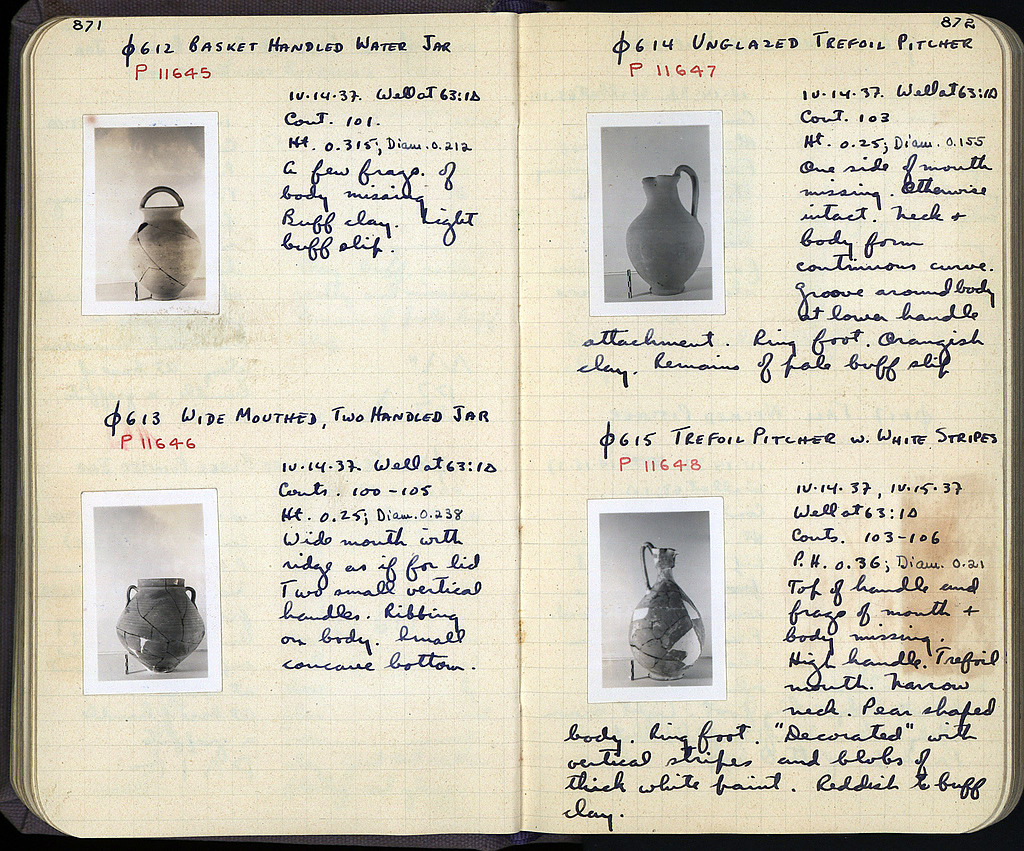 871
ϕ612 BASKET HANDLED WATER JAR
P 11645
IV.14.37. Well at 63:1Δ
Cont. 101.
Ht. 0.315; Diam. 0.212
A few frags. of
body missing
Buff clay. Light
buff slip.
ϕ613 WIDE MOUTHED, TWO HANDLED JAR
P 11646
IV.14.37. Well at 63:1Δ
Conts. 100-105
Ht. 0.25; Diam. 0.238
Wide mouth with
ridge as if for lid
Two small vertical
handles. Ribbing
on body. Small
concave bottom.
872
ϕ614 UNGLAZED TREFOIL PITCHER
P 11647
IV.14.37. Well at 63:1Δ
Cont. 103
Ht. 0.25; Diam. 0.155
One side of mouth
missing. Otherwise
intact. Neck +
body form
continuous curve.
Groove around body
at lower handle
attachment. Ring foot. Orangish
clay. Remains of pale buff slip
ϕ615 TREFOIL PITCHER W. WHITE STRIPES
P 11648
IV.14.37, IV.15.37
Well at 63:1Δ
Conts. 103-106
P.H. 0.36; Diam. 0.21
Top of handle and
frags of mouth +
body missing.
High handle. Trefoil
mouth. Narrow
neck. Pear shaped
body. Ring foot. "Decorated" with
vertical stripes and blobs of
thick white paint. Reddish to buff
clay.